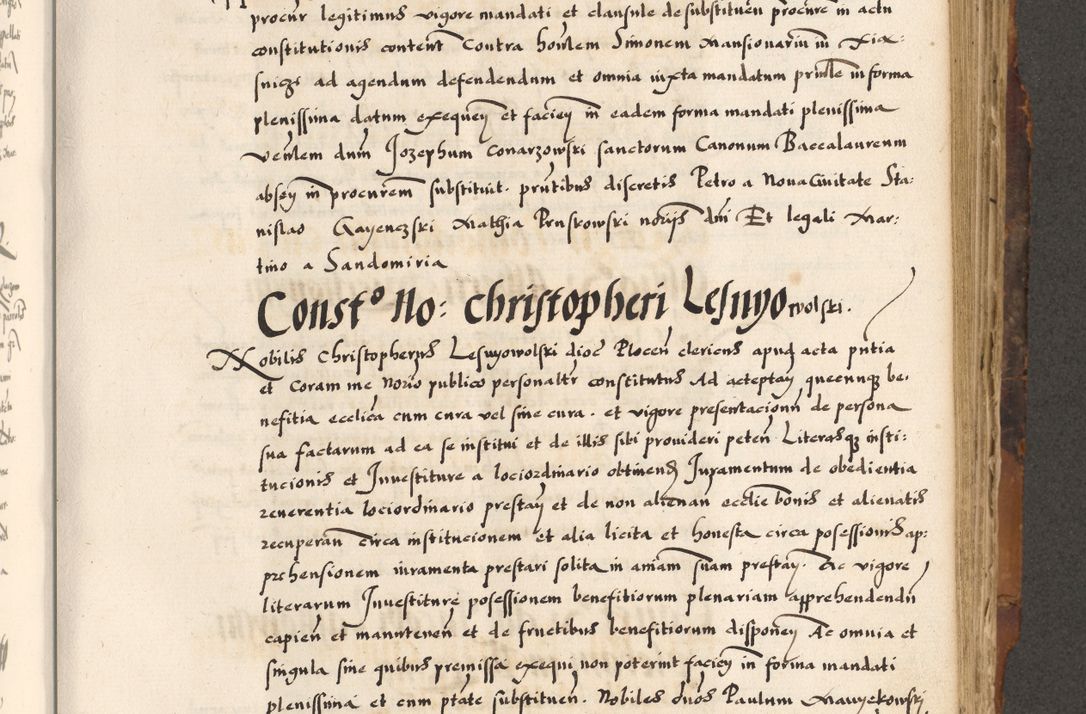 procur legitimus vigore mandati et clausule de substituen procure in actu
constitutionis content Contra honlem Simonem mansionariu in Xiax:
snicze ad agendum defendendum et omnia iuxta mandatum prinle in forma
plenissima datum exequen et facien in eadem forma mandati plenissima
Venlem dum Jozephum Conarzowski sanctorum Canonum Baccalaureum
absen in procurem substituit. pntibus discretis Petro a Nova Civitate Sta:
nislao Gayenczski Mathia Pruskowski norijs dni Et legali Mar:
tino a Sandomiria
Const° No: Christopheri Lesnyowolski.
Nobilis Christopherus Lesnyowolski dioc Plocen clericus apud acta pntia
et Coram me Norio publico personalr constitutus Ad acceptan quecunq be:
nefitia ecclica cum cura vel sine cura. et vigore presentacionu de persona
sua factarum ad ea se institui et de illis sibi provideri peten Literasq insti:
tucionis et Investiture a lociordinario obtinend Juramentum de obedientia
reverentia lociordinario prestan et de non alienan ecclie bonis et alienatis
recuperan circa institucionem et alia licita et honesta circa posessionis ap:
prehensionem iuramenta prestari solita in aniam suam prestan. Ac vigore
literarum Investiture posessionem benefitiorum plenariam apprehendendu
capien et manuteneñ et de fructibus benefitiorum disponen Ac omnia et
singula sine quibus premissa exequi non poterint facien in forma mandati
plenissima et cum ptate substituen. Nobiles duos Paulum